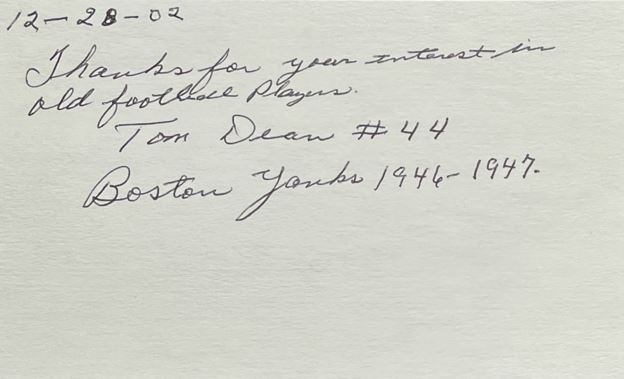 12-28-02
Thanks for your interest in
old football players.
Tom Dean #44
Boston Yanks 1946-1947.